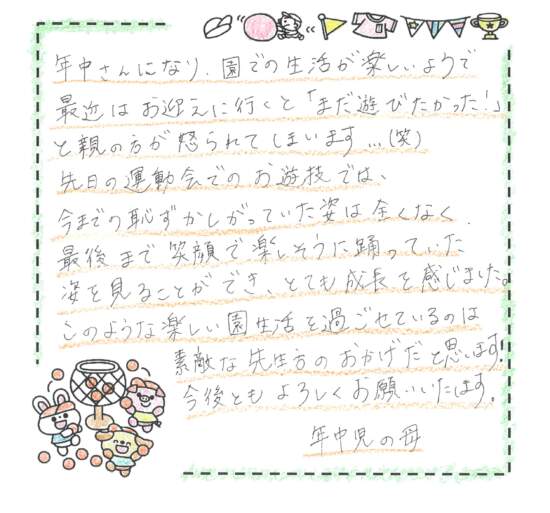 年中さんになり、園での生活が楽しいようで
最近はお迎えに行くと「まだ遊びたかった!」
と親の方が怒られてしまいます…(笑)
先日の運動会でのお遊技では、
今までの恥ずかしがっていた姿は全くなく、
最後まで笑顔で楽しそうに踊っていた
姿を見ることができ、とても成長を感じました。
このような楽しい園生活を過ごせているのは
素敵な先生方のおかげだと思います!
今後ともよろしくお願いいたします。
年中児の母